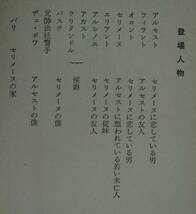 登場人物
アルセスト　セリメーヌに恋している男
フィラント　アルセストの友人
オロント　セリメーヌに恋している男
セリメーヌ　アルセストに想われている若い未亡人
エリアント　セリメーヌの従妹
アルシノエ　セリメーヌの友人
アカスト
クリタンドル　侯爵
バスク　セリメーヌの僕
元帥法廷警手
デュ・ボワ　アルセストの僕
パリ　セリメーヌの家